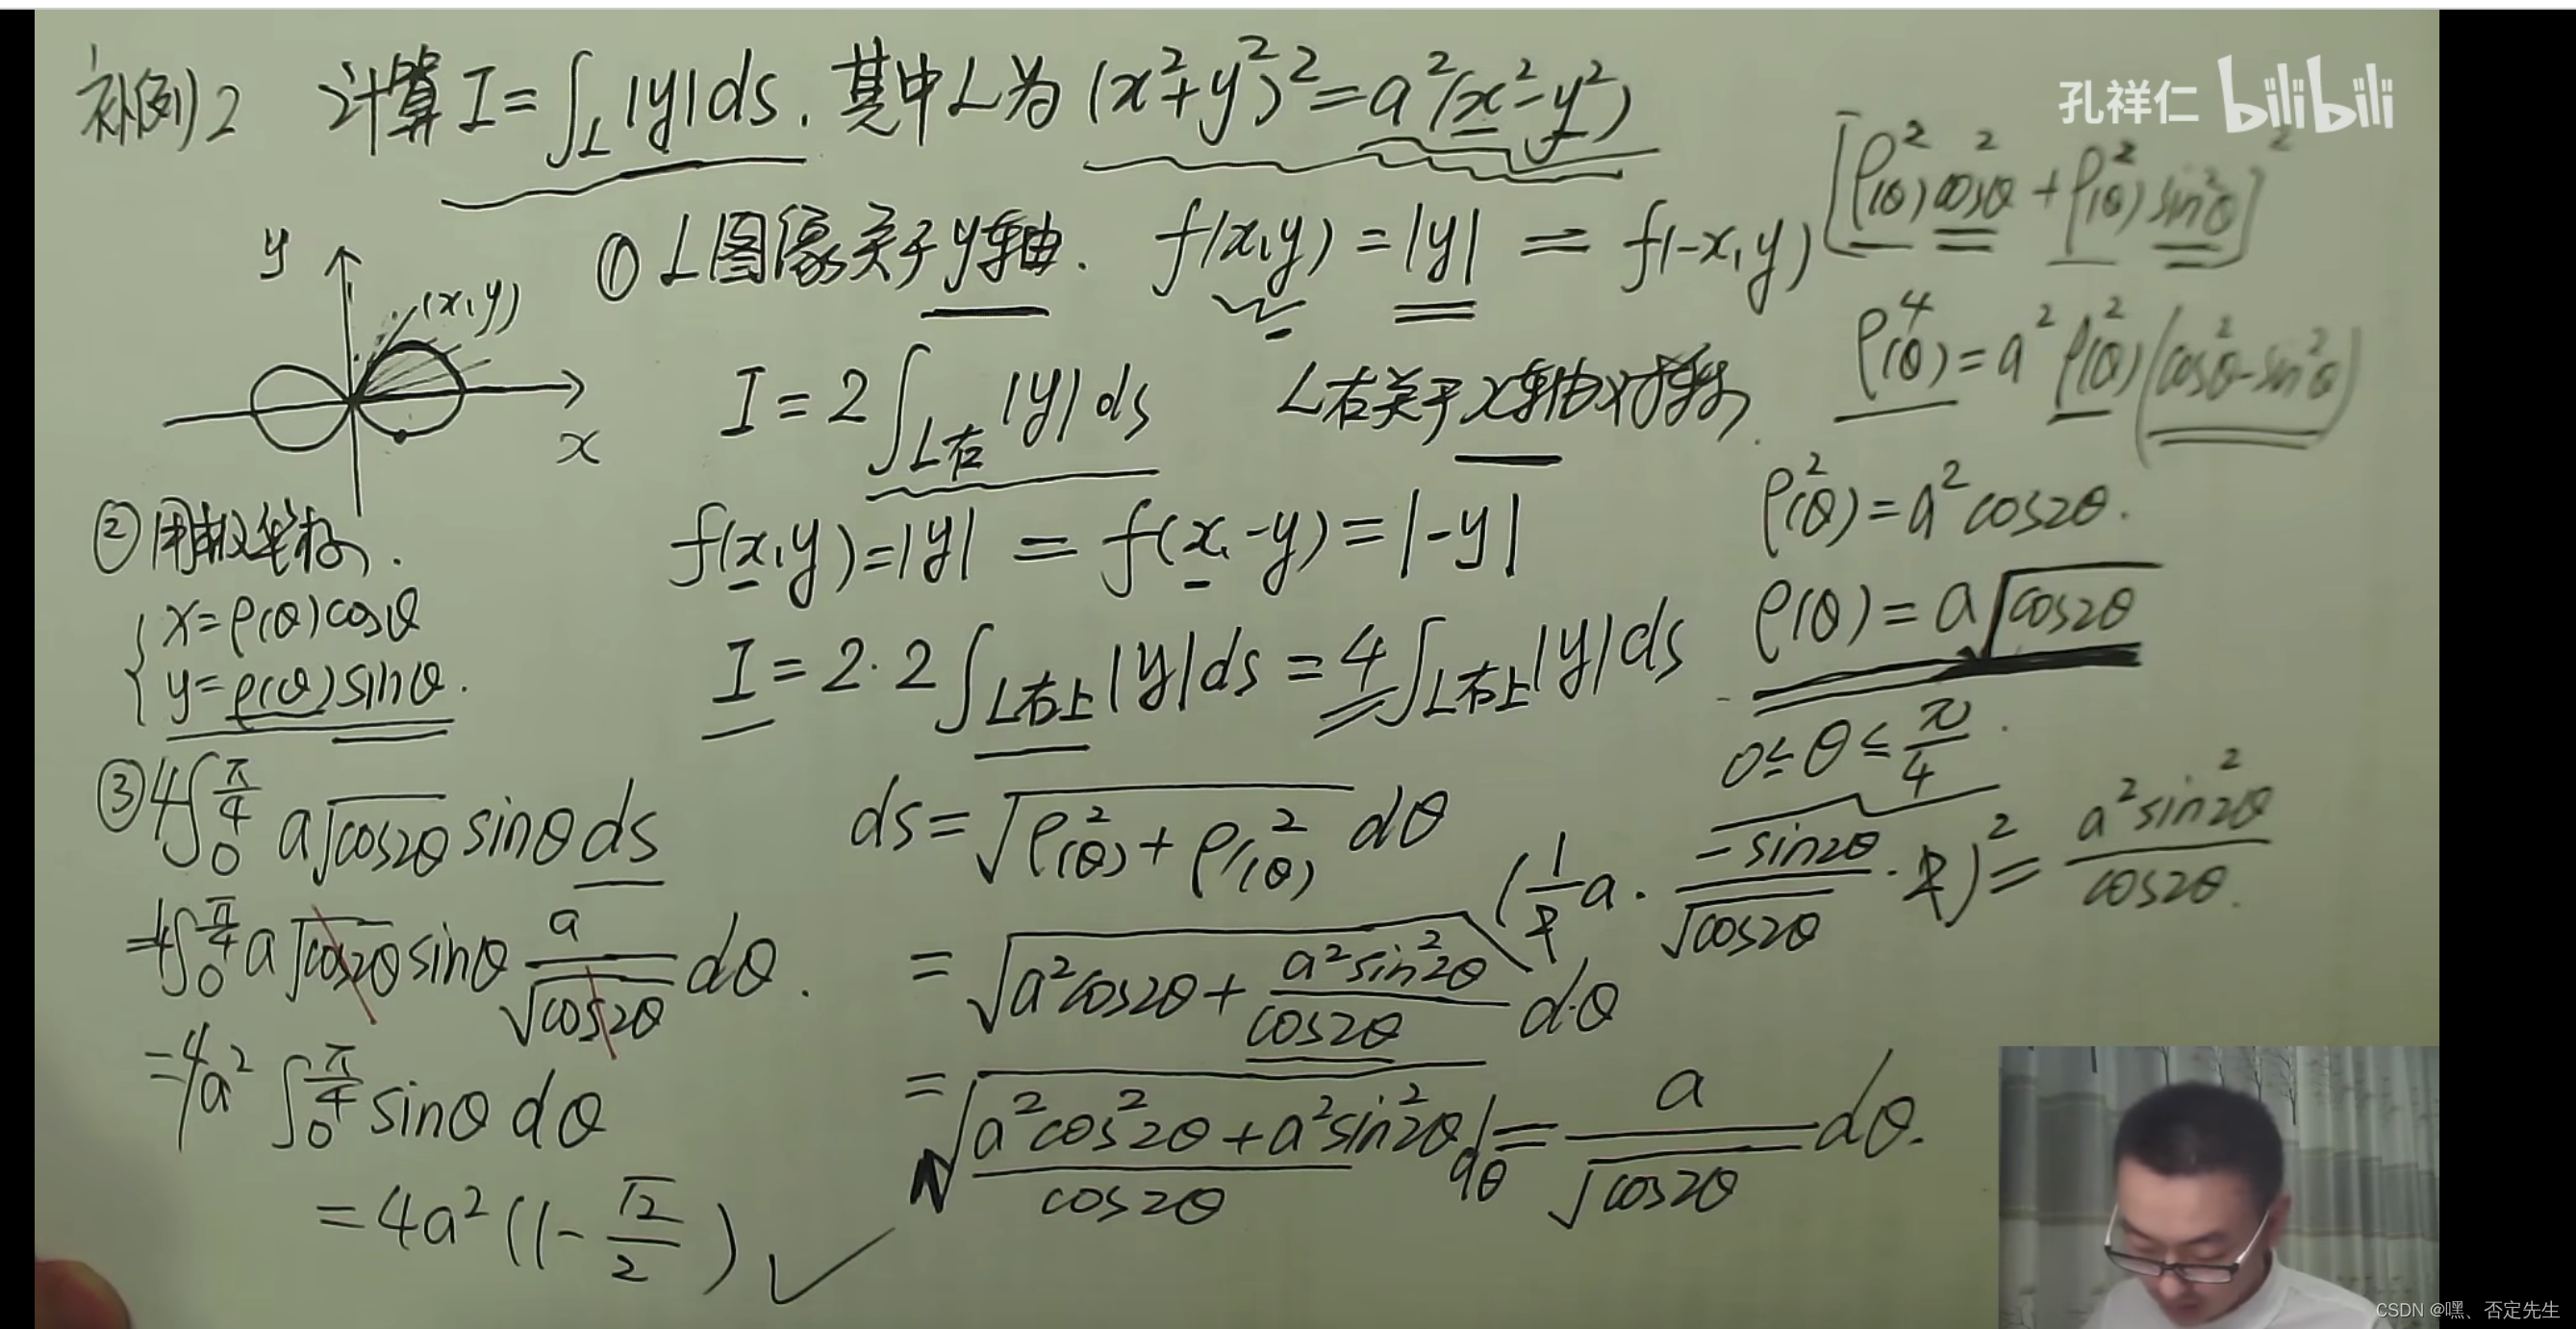 补例2 计算 I = ∫_L |y| ds. 其中L为 (x²+y²)² = a²(x²-y²)
孔祥仁 bilibili
[ρ²(θ)cos²θ + ρ²(θ)sin²θ]²
① L图像关于y轴. f(x,y) = |y| = f(-x,y)
y
(x,y)
x
ρ⁴(θ) = a²ρ²(θ)(cos²θ-sin²θ)
I = 2∫_{L右} |y| ds L右关于x轴对称.
ρ²(θ) = a²cos2θ.
② 用极坐标.
f(x,y)=|y| = f(x,-y) = |-y|
{ x=ρ(θ)cosθ
y=ρ(θ)sinθ.
ρ(θ) = a√cos2θ
I = 2·2∫_{L右上} |y| ds = 4∫_{L右上} |y| ds
0≤θ≤π/4.
③ 4∫_0^{π/4} a√cos2θ sinθ ds
ds = √(ρ²(θ) + ρ'²(θ)) dθ
(1/2 a · -sin2θ/√cos2θ · 2)² = a²sin²2θ/cos2θ.
=4∫_0^{π/4} a√cos2θ sinθ a/√cos2θ dθ.
= √(a²cos2θ + a²sin²2θ/cos2θ) dθ
=4a² ∫_0^{π/4} sinθ dθ
= √((a²cos²2θ + a²sin²2θ)/cos2θ) dθ = a/√cos2θ dθ.
= 4a²(1-√2/2)
CSDN @嘿、否定先生